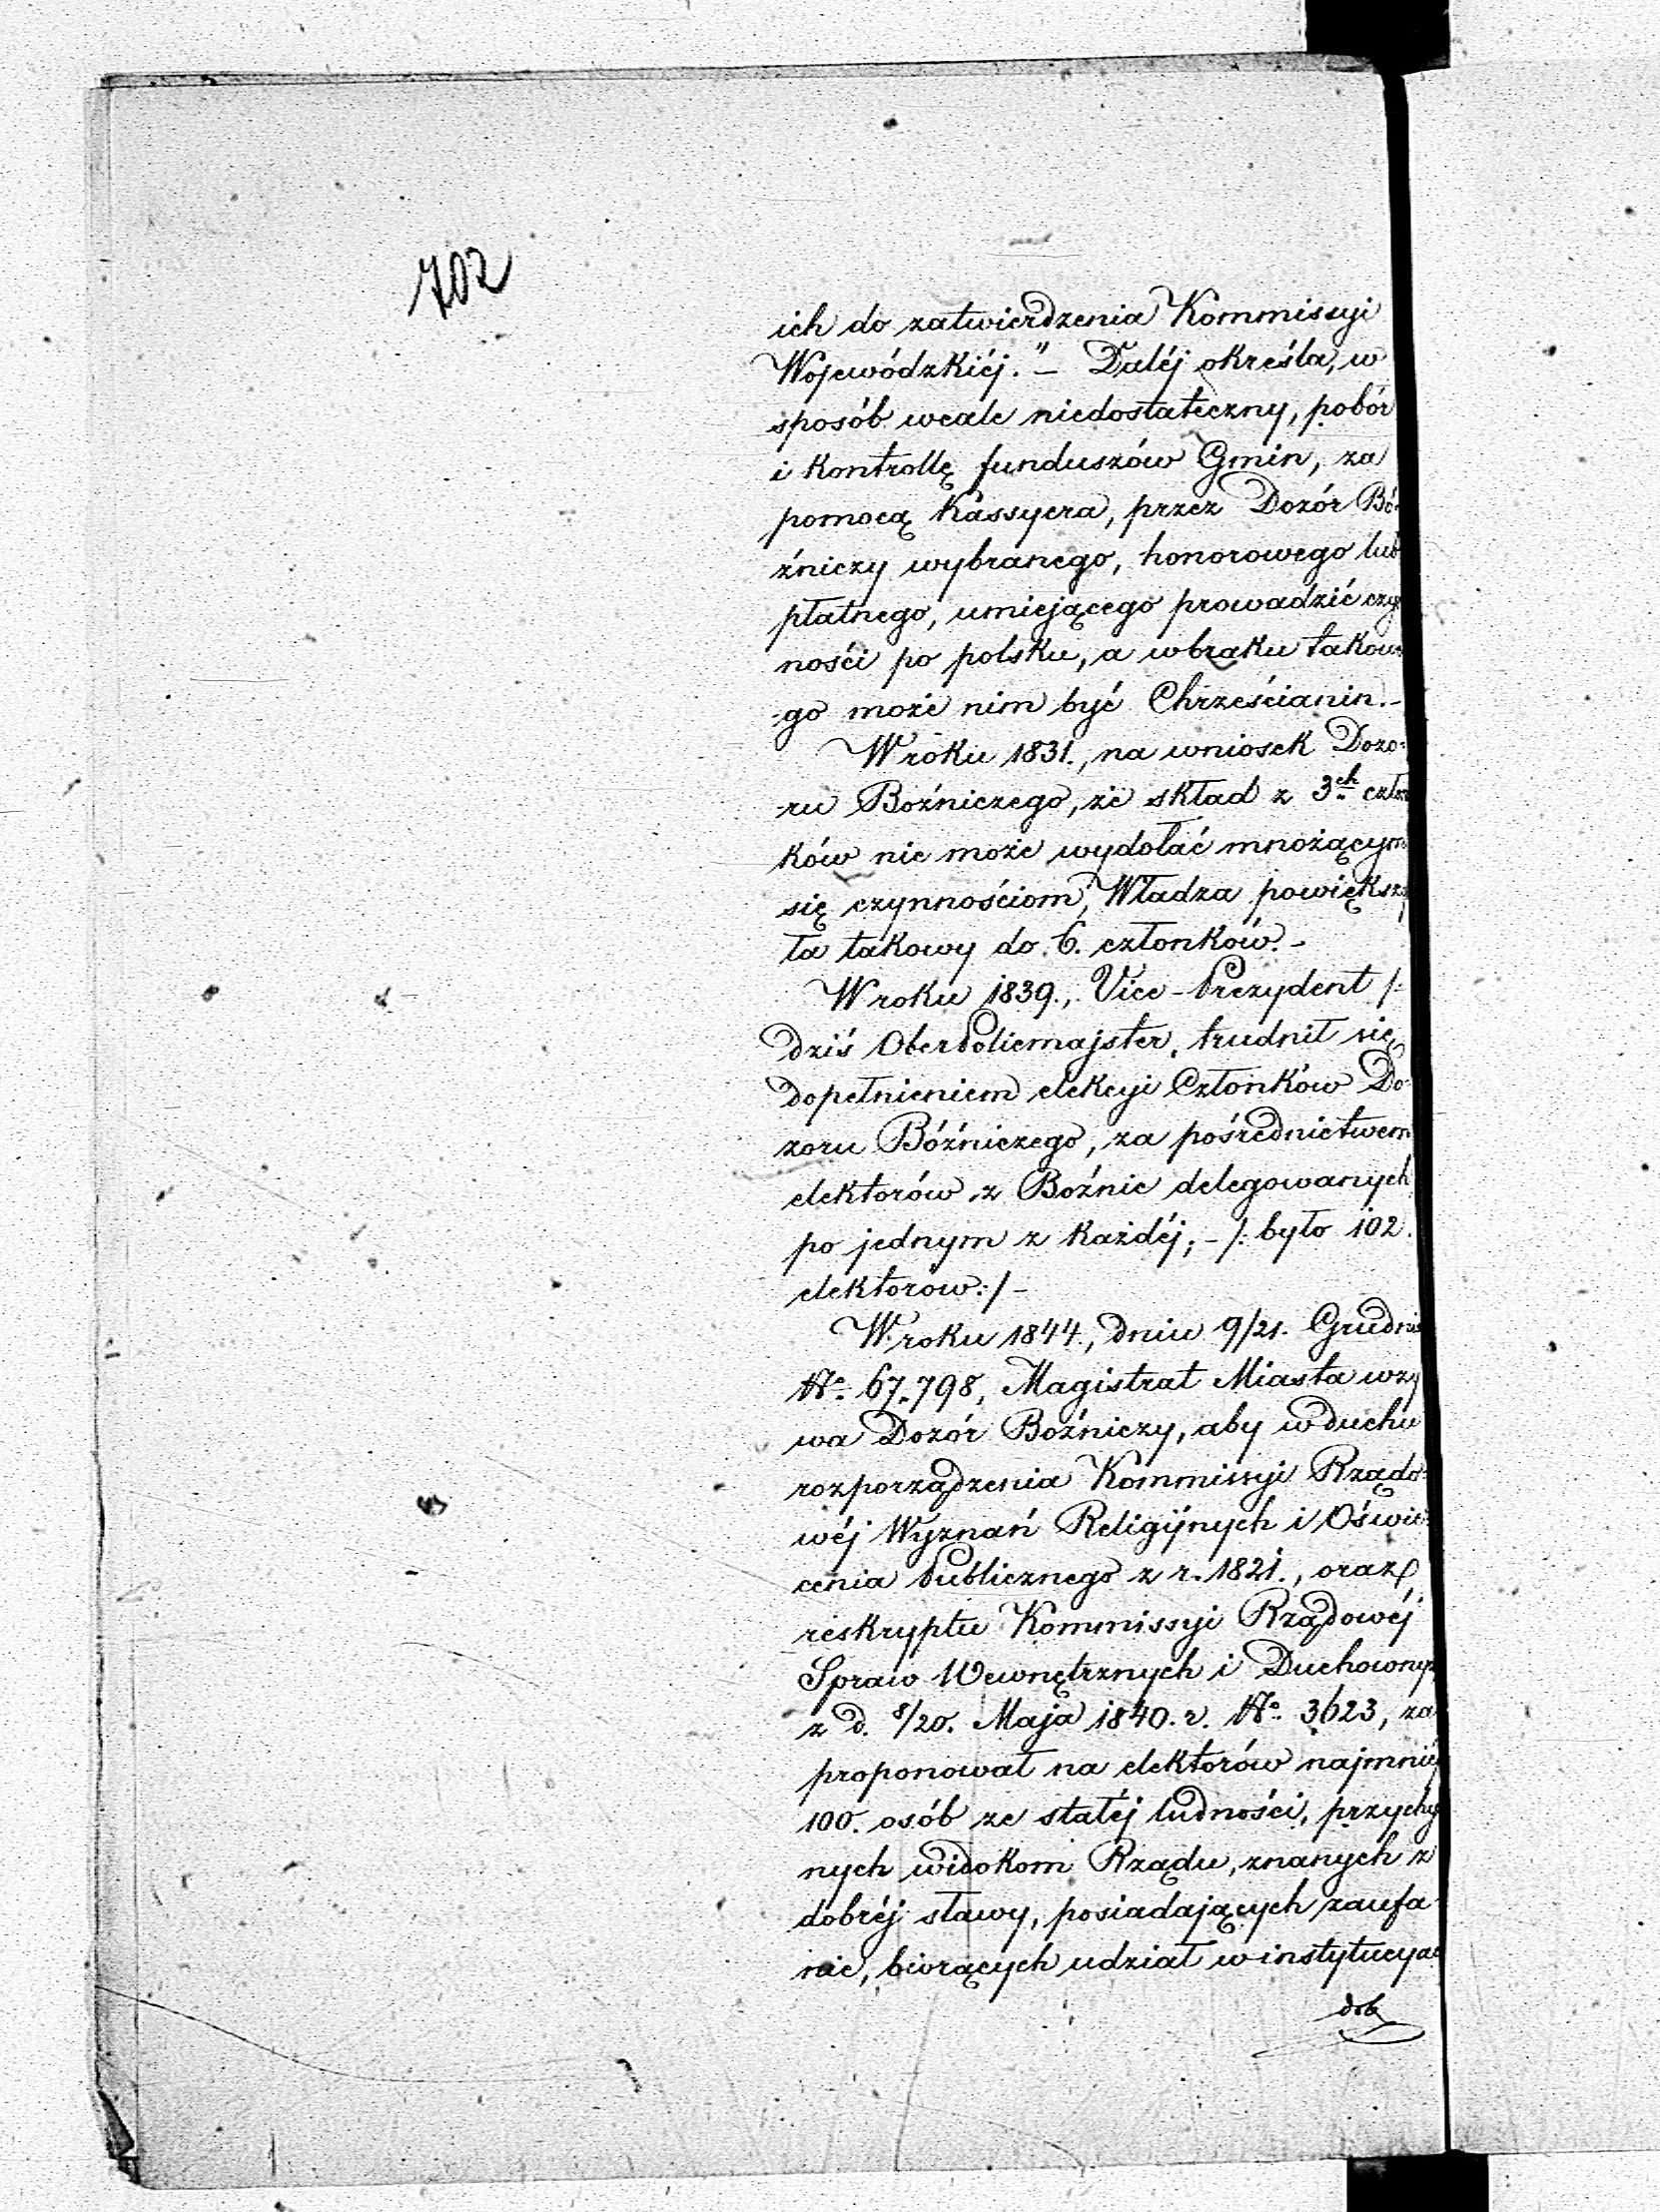 702
ich do zatwierdzenia Kommissyi
Wojewódzkiéj."_ Daléj określa, w
sposób wcale niedostateczny, pobór
i kontrollę funduszów Gmin, za
pomocą Kassyera, przez Dozór Bó-
źniczy wybranego, honorowego lub
płatnego, umiejącego prowadzić czy
ności po polsku, a w braku takow
-go może nim być Chrześcianin._
W roku 1831., na wniosek Dozo-
-ru Boźniczego, że skład z 3ch człon
ków nie może wydołać mnożącym
się czynnościom, Władza powiększy
ła takowy do 6. członków._
W roku 1839., Vice-Prezydent /:
dziś Oberpolicmajster, trudnił się
dopełnieniem elekcyi Członków Do-
zoru Bóźniczego, za pośrednictwem
elektorów z Boźnic delegowanych
po jednym z każdéj;_ /: było 102.
elektorów:/_
W roku 1844., dniu 9/21. Grudnia
No. 67.798, Magistrat Miasta wzy
wa Dozór Boźniczy, aby w duchu
rozporządzenia Kommissyi Rządo-
wéj Wyznań Religijnych i Oświe-
cenia Publicznego z r. 1821., oraz
reskryptu Kommissyi Rządowéj
Spraw Wewnętrznych i Duchowny
z d. 8/20. Maja 1840. r. No. 3623, za-
proponował na elektorów najmniéj
100. osób ze stałéj ludności, przychyl
nych widokom Rządu, znanych z
dobréj sławy, posiadających zaufa-
nie, biorących udział w instytucyac
dob